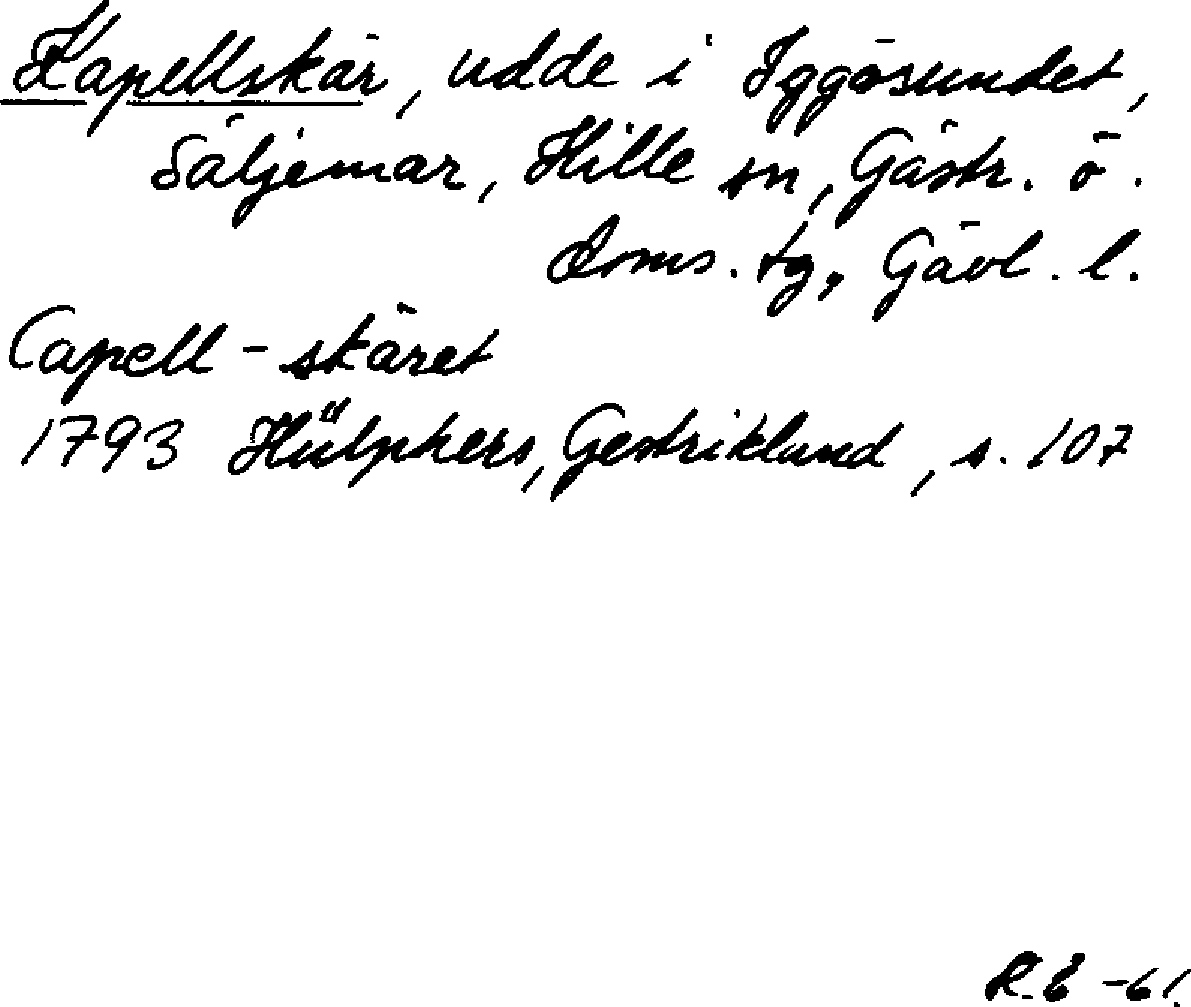 Kapellskär, udde i Iggösundet,
Säljemar, Hille sn, Gästr. ö.
doms. tg, Gävl. l.
Capell-skäret
1793 Hülphers, Gestrikland, s. 107
R.E -61.